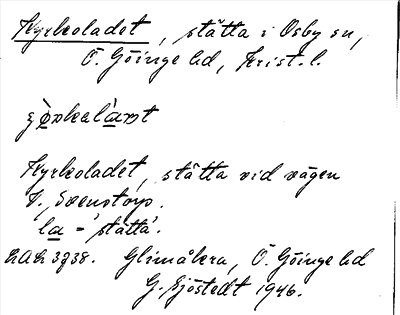 Kyrkoladet, stätta i Osby sn,
Ö. Göinge hd, Krist. l.
Kyrkoladet, stätta vid vägen
t. Svenstorp.
la = 'stätta'.
LAL 3738. Glimåkra, Ö. Göinge hd
G. Sjöstedt 1946.